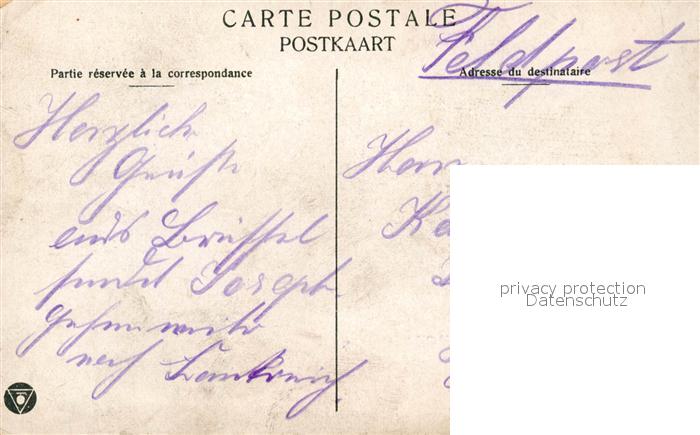 CARTE POSTALE
POSTKAART
Feldpost
Partie réservée à la correspondance
Adresse du destinataire
Herzliche
Grüße
aus Brüssel
sendet Joseph
gehen weiter
nach Frankreich
Herrn
privacy protection
Datenschutz